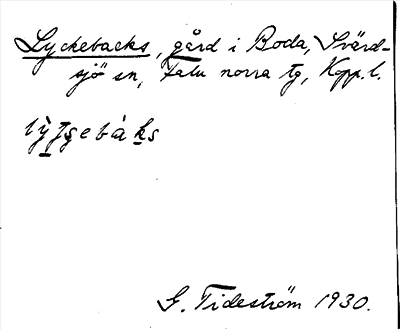 Lyckebacks, gård i Boda, Svärd-
sjö sn, Falu norra tg, Kopp. l.
G. Tideström 1930.